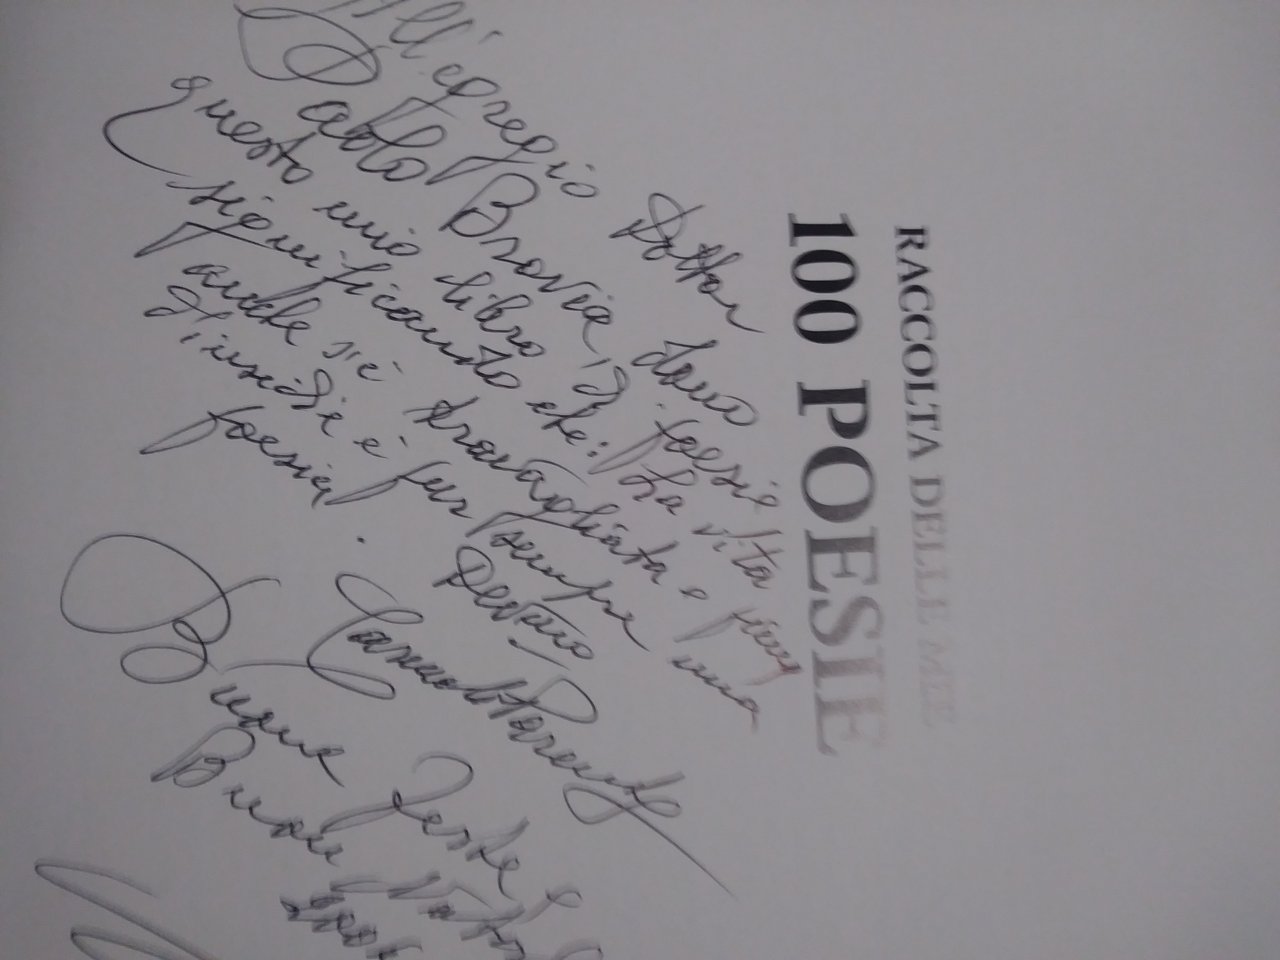 RACCOLTA DELLE MIE
100 POESIE
All'egregio Dottor
Paolo Bravia, dono
questo mio libro di poesie
significando che: La vita
anche s'è travagliata e piena
d'insidie è pur sempre una
poesia.
Devino
Parente
Buone Feste e
Buon Natale